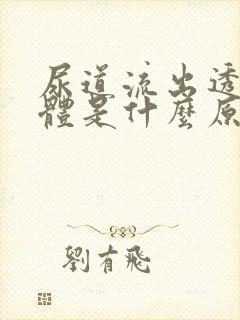 尿道流出透
體是什麼原
劉有飛